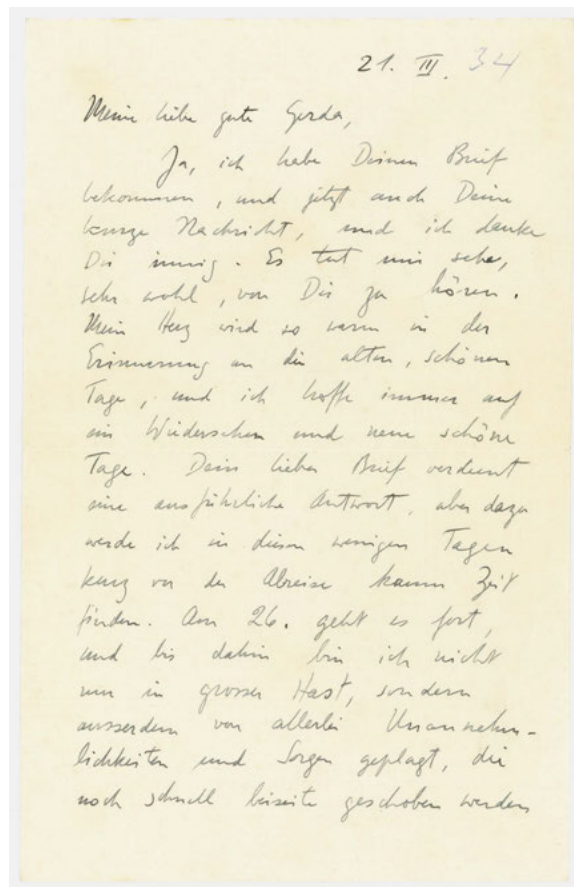 21. III. 34
Meine liebe gute Gerda,
Ja, ich habe Deinen Brief
bekommen, und jetzt auch Deine
kurze Nachricht, und ich danke
Dir innig. Es tut mir sehr,
sehr wohl, von Dir zu hören.
Mein Herz wird so warm in der
Erinnerung an die alten, schönen
Tage, und ich hoffe immer auf
ein Wiedersehen und neue schöne
Tage. Dein lieber Brief verdient
eine ausführliche Antwort, aber dazu
werde ich in diesen wenigen Tagen
kurz vor der Abreise kaum Zeit
finden. Am 26. geht es fort,
und bis dahin bin ich nicht
nur in grosser Hast, sondern
ausserdem von allerlei Unannehm-
lichkeiten und Sorgen geplagt, die
noch schnell beiseite geschoben werden